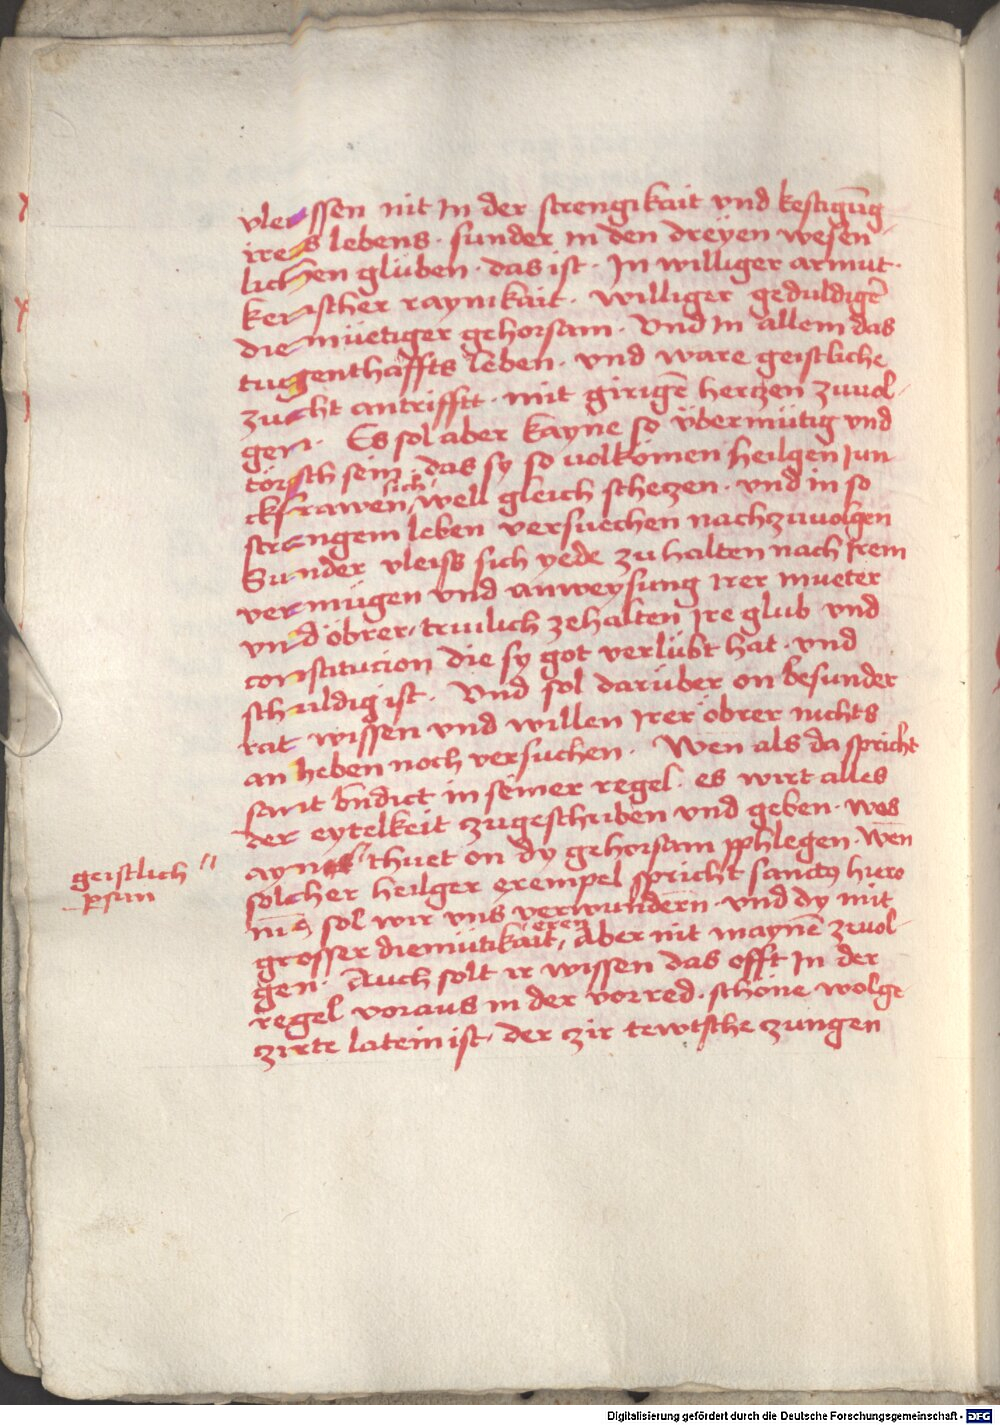 vleyssen nit In der strengikait vnd kestigūg
ires lebens · sunder in den dreyen wesen
lichen glüben · das ist · In williger armut ·
keuscher raynikait · williger geduldigē
diemüetiger gehorsam · Vnd In allem das
tugenthaffts leben · vnd ware geistliche
zucht antrifftt · mit girigē hertzen zuuol-
gen · Es sol aber kayne so übermütig vnd
törisch sein · das sy so uolkōmen heilgen Jun
ckfrawen sich well gleich schetzen · vnd in so
strengem leben versuechen nachzuuolgen
Sunder vleiss sich yede zu halten nach Irem
vermügen vnd anweysung Irer mueter
vnd öbrer · trulich zehalten Ire glub vnd
constitucion die sy got verlübt hat · vnd
schuldig ist · Vnd sol darüber on besunder
rat wissen vnd willen Irer öbrer nichts
an heben noch versuchen · Wen als da spricht
sant bndict in seiner regel · es wirt alles
der eytelkeit zugeschriben vnd geben · wes
ayns thuet on dy gehorsam pphlegen · Wen
geistlich "
psun
solcher heilger exempel spricht sanctus hiero
nims sol wir vns verwundern · vnd dy mit
grosser diemütikait eren, Aber nit maynē zeuol-
gen · Auch solt ir wissen das offt In der
regel voraus in der vorred · schöne wolge
zirte latein ist · der zir tewtsche zungen
Digitalisierung gefördert durch die Deutsche Forschungsgemeinschaft - DFG